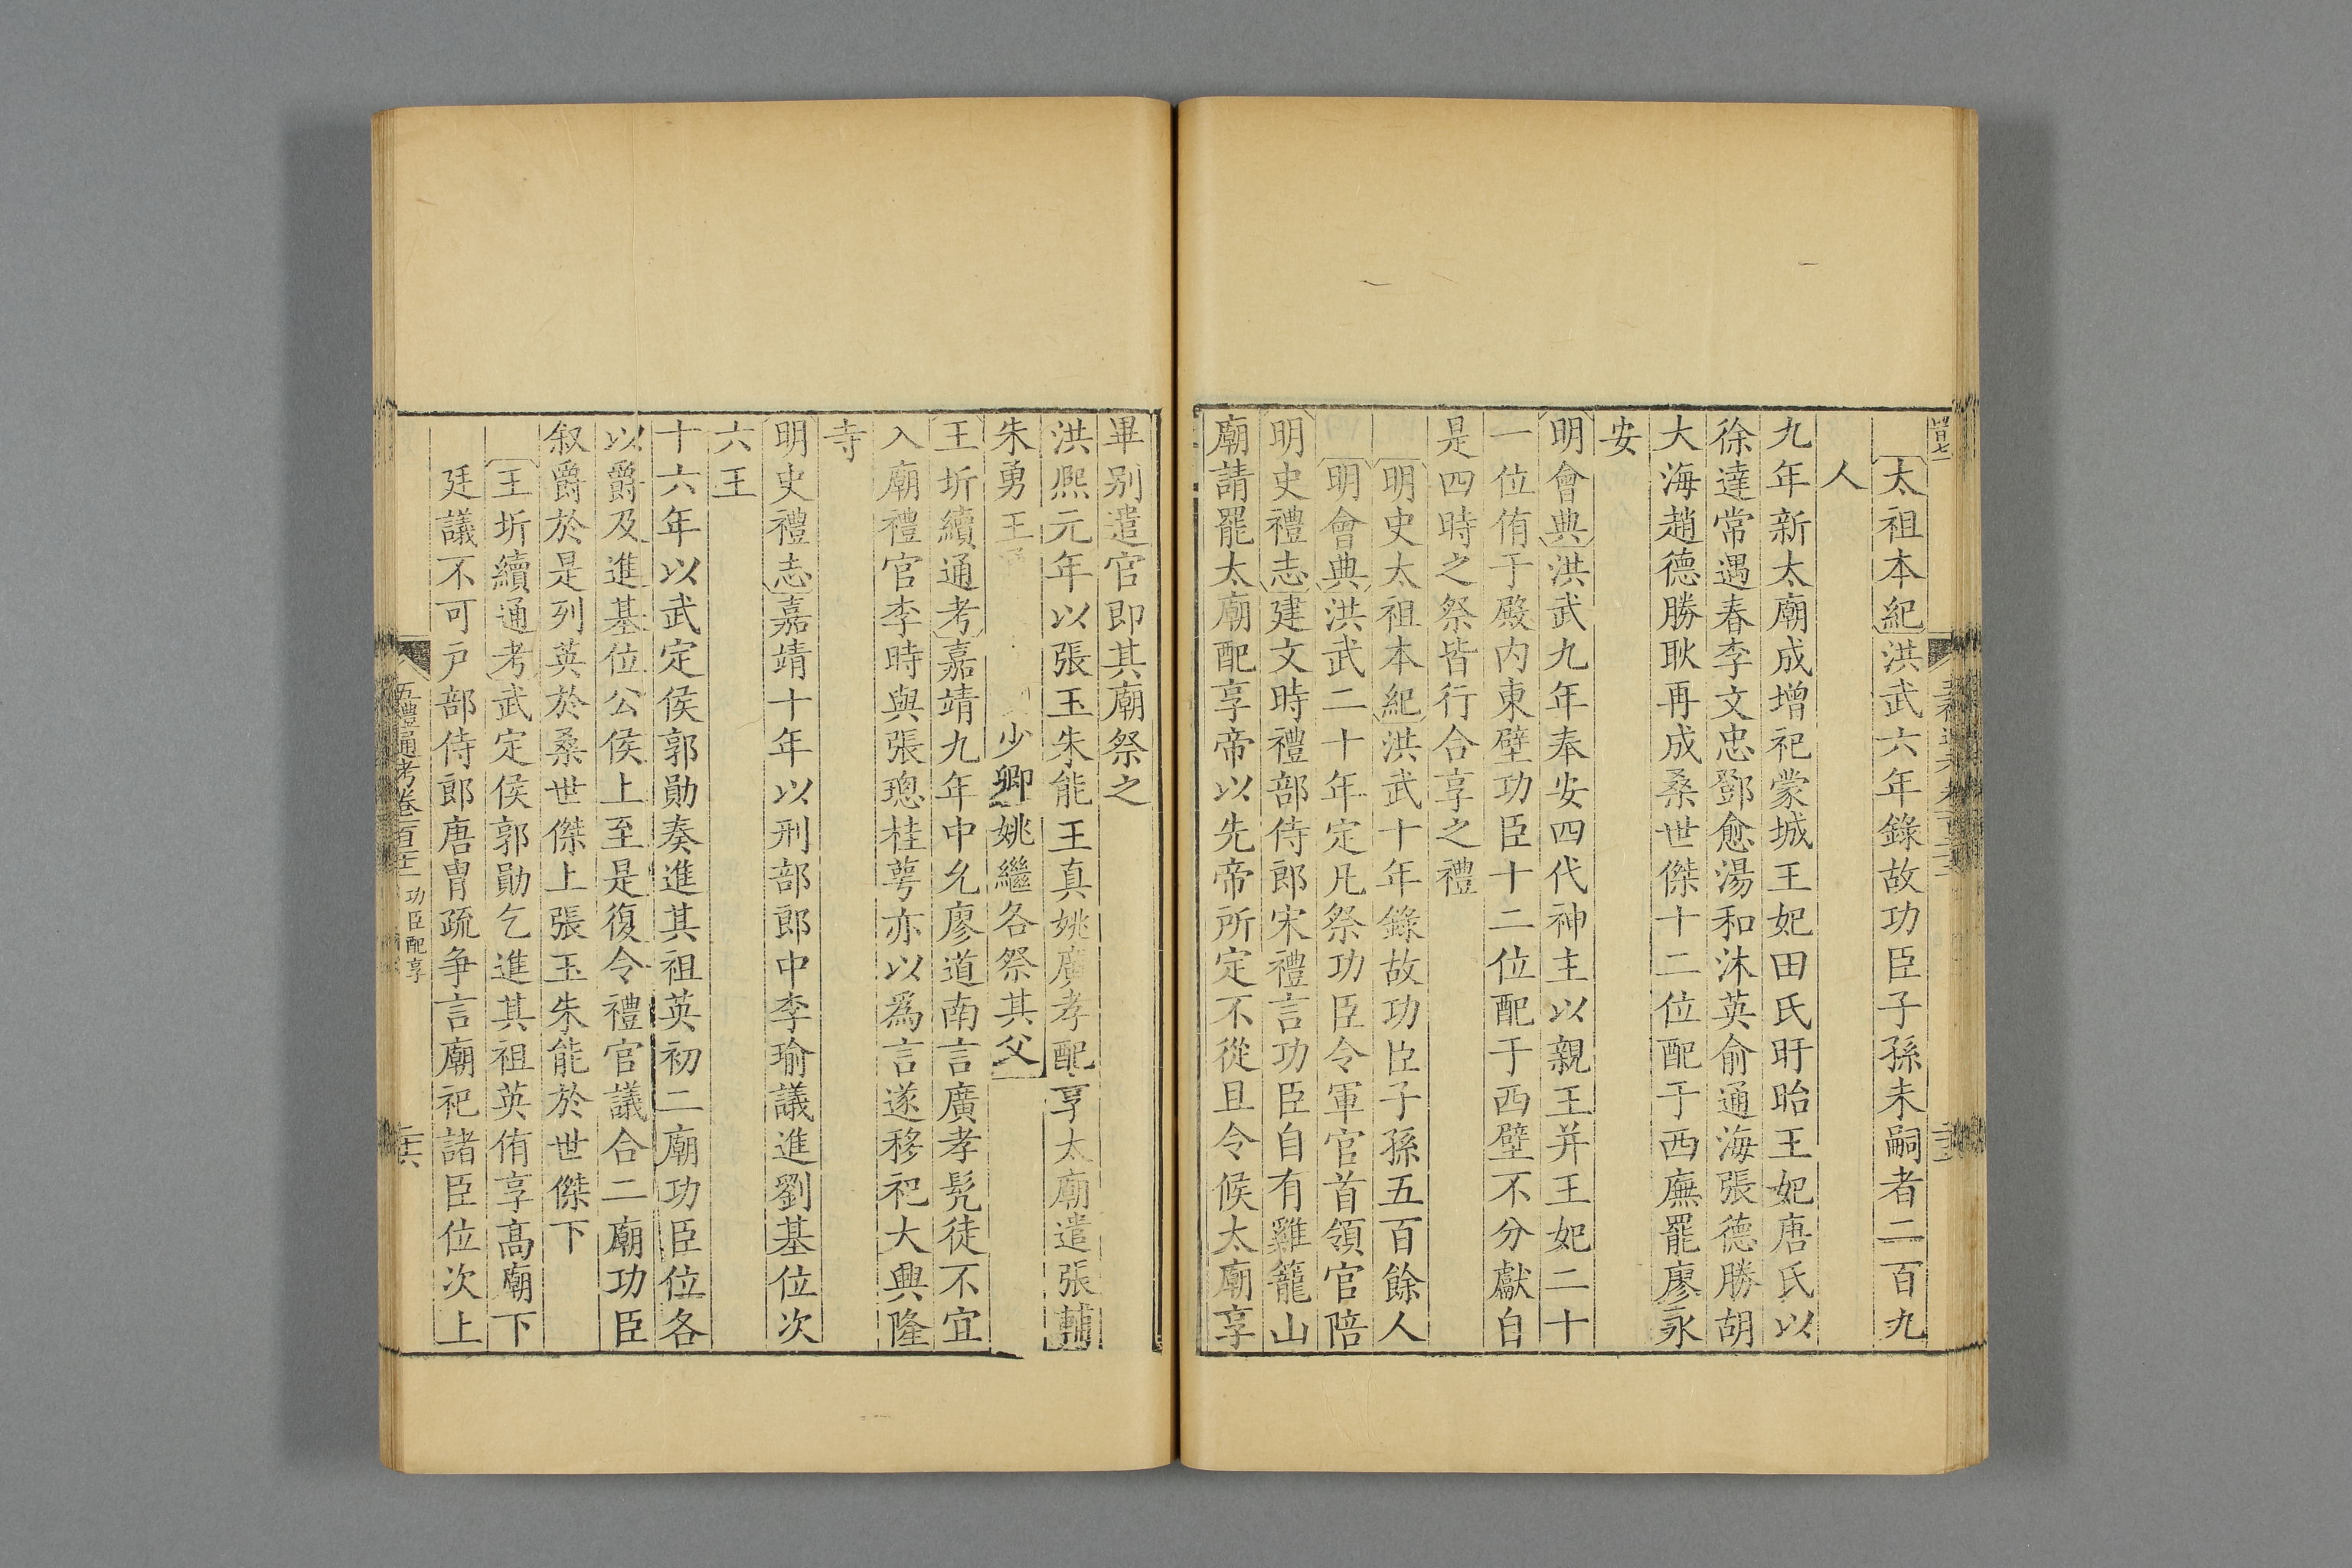 太祖本紀洪武六年錄故功臣子孫未嗣者二百九
人
九年新太廟成增祀蒙城王妃田氏盱眙王妃唐氏以
徐達常遇春李文忠鄧愈湯和沐英俞通海張德勝胡
大海趙德勝耿再成桑世傑十二位配于西廡罷廖永
安
明會典洪武九年奉安四代神主以親王并王妃二十
一位侑于殿内東壁功臣十二位配于西壁不分獻自
是四時之祭皆行合享之禮
明史太祖本紀洪武十年錄故功臣子孫五百餘人
明會典洪武二十年定凡祭功臣令軍官首領官陪
明史禮志建文時禮部侍郎宋禮言功臣自有雞籠山
廟請罷太廟配享帝以先帝所定不從且令候太廟享
畢别遣官即其廟祭之
洪熈元年以張玉朱能王真姚廣孝配享太廟遣張輔
朱勇王 少卿姚繼各祭其父
王圻續通考嘉靖九年中允廖道南言廣孝髡徒不宜
入廟禮官李時與張璁桂萼亦以爲言遂移祀大興隆
寺
明史禮志嘉靖十年以刑部郎中李瑜議進劉基位次
六王
十六年以武定侯郭勛奏進其祖英初二廟功臣位各
以爵及進基位公侯上至是復令禮官議合二廟功臣
叙爵於是列英於桑世傑上張玉朱能於世傑下
王圻續通考武定侯郭勛乞進其祖英侑享高廟下
廷議不可戸部侍郎唐冑疏争言廟祀諸臣位次上
五禮通考卷一百二十二 功臣配享 二十六